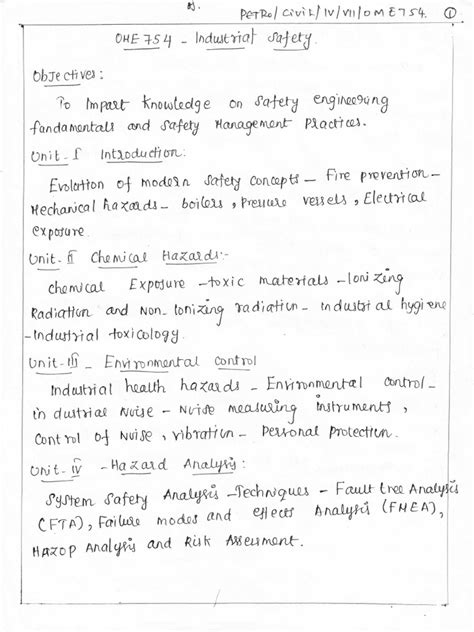 PETRO/Civil/IV/VII/OME754. 1
OME754 - Industrial Safety.
Objectives:
To Impart Knowledge on Safety engineering
fundamentals and Safety Management Practices.
Unit-I Introduction:
Evolution of modern Safety concepts - Fire prevention -
Mechanical hazards - boilers, Pressure vessels, Electrical
exposure.
Unit-II Chemical Hazards:-
Chemical Exposure - toxic materials - Ionizing
Radiation and Non-Ionizing radiation - Industrial hygiene
- Industrial toxicology.
Unit-III - Environmental Control
Industrial health hazards - Environmental control -
industrial Noise - Noise measuring instruments,
Control of Noise, vibration - Personal Protection.
Unit-IV - Hazard Analysis:
System Safety Analysis - Techniques - Fault tree Analysis
(FTA), Failure modes and effects Analysis (FMEA),
HAZOP Analysis and Risk Assessment.